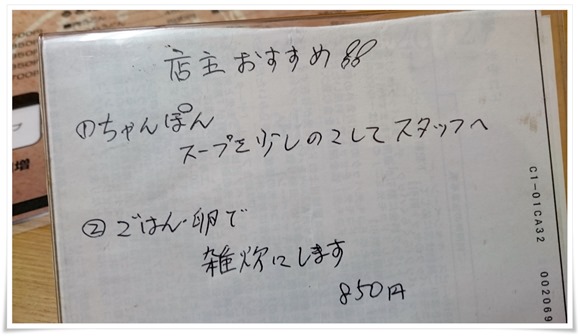 店主おすすめ
①ちゃんぽん
スープを少しのこしてスタッフへ
②ごはん・卵で
雑炊にします
850円
C1-01CA32 002069
増